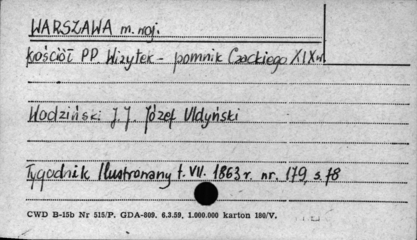 WARSZAWA m. woj.
Kościół PP Wizytek - pomnik Czackiego XIX w.
Wodziński J. J. Józef Uldyński
Tygodnik Ilustrowany t. VII. 1863 r. nr. 179, s. 78
CWD B-15b Nr 515/P. GDA-809. 6.3.59. 1.000.000 karton 180/V.